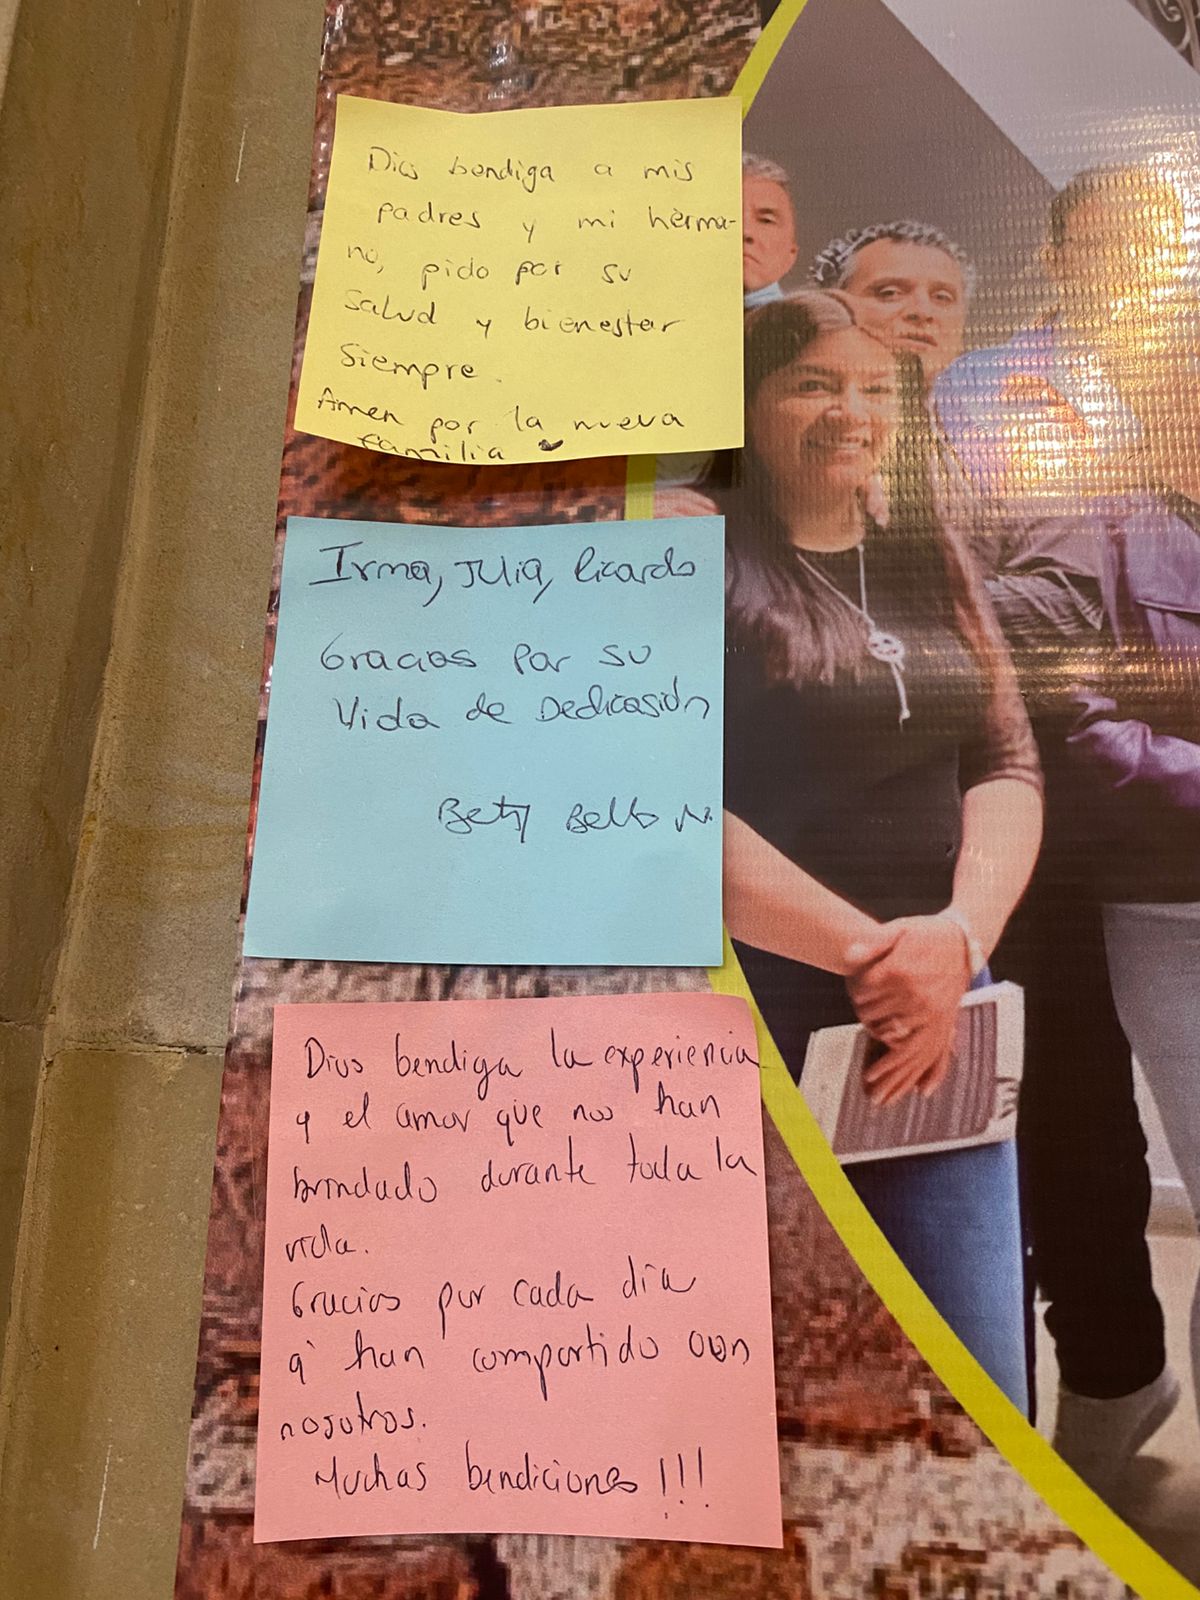 Dios bendiga a mis
padres y mi herma-
no, pido por su
salud y bienestar
siempre.
Amen por la nueva
familia
Irma, Julia, Ricardo
Gracias por su
Vida de Dedicasión
Betty Bello N.
Dios bendiga la experiencia
y el amor que nos han
brindado durante toda la
vida.
Gracias por cada día
q' han compartido con
nosotros.
Muchas bendiciones !!!